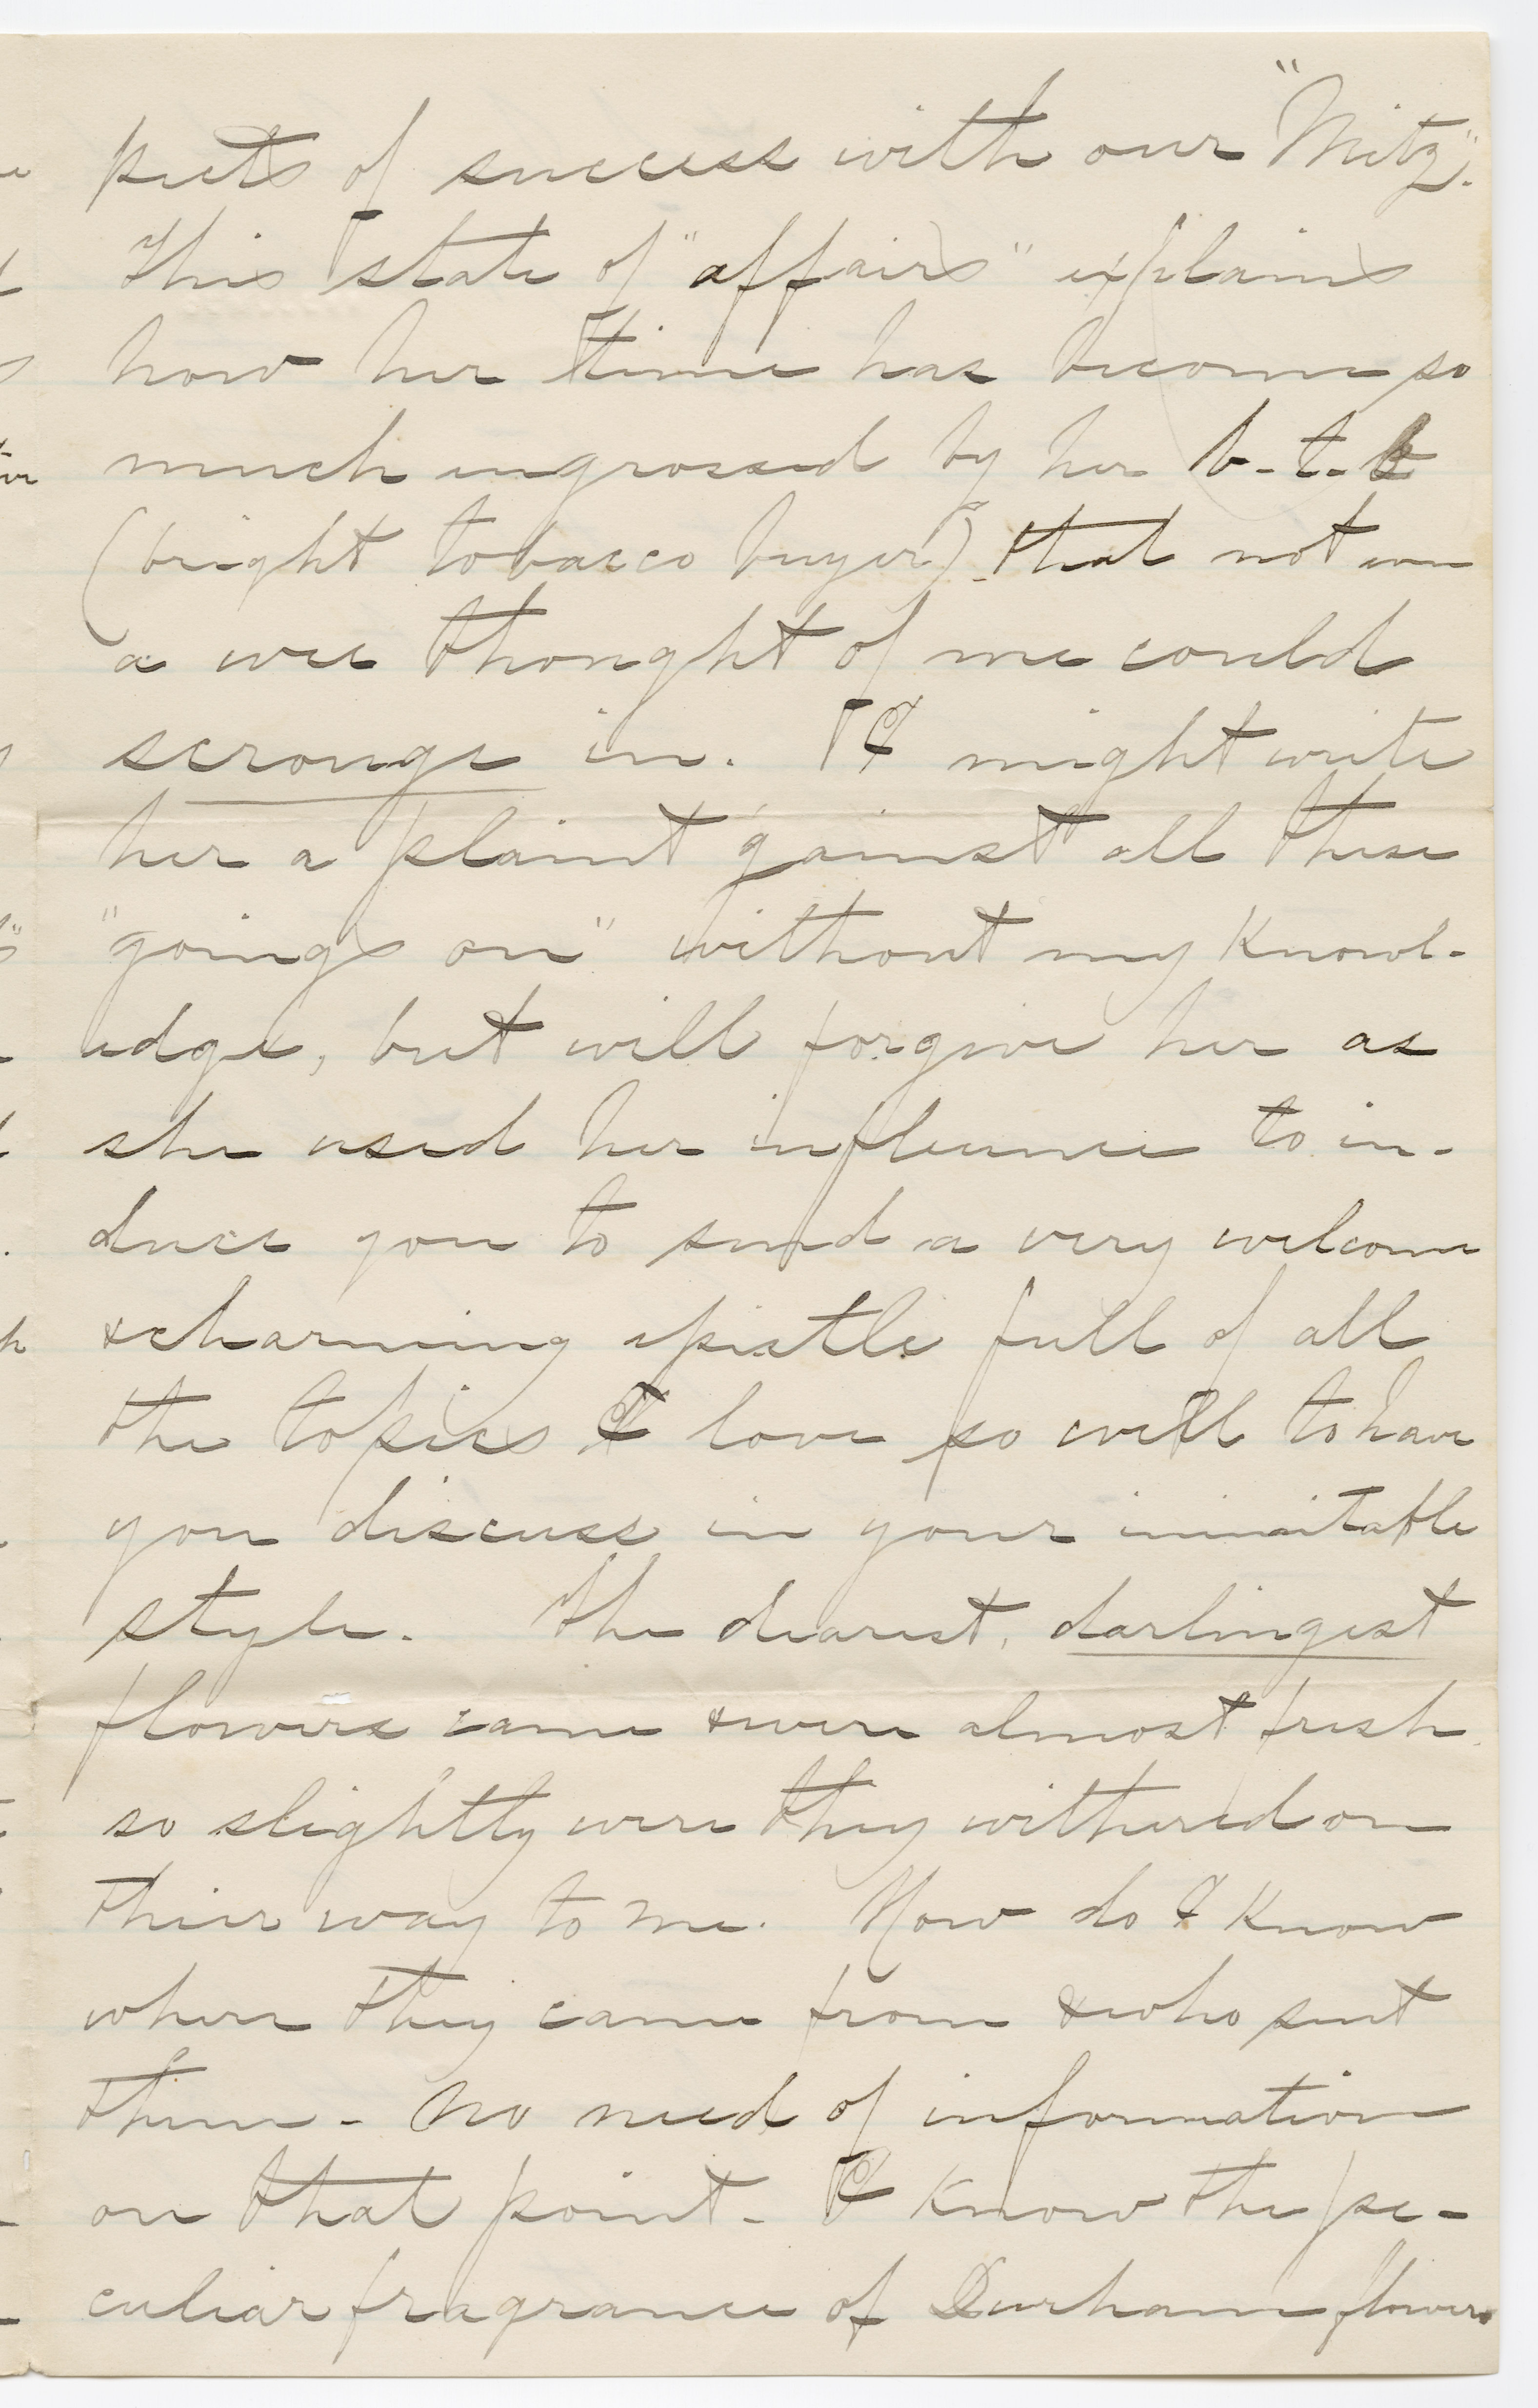 pects of success with our "Mitz".
This state of "affairs" explains
how her time has become so
much engrossed by her b-t-b
(bright tobacco buyer) that not even
a wee thought of me could
scrouge in. I might write
her a plaint 'gainst all these
"goings on" without my knowl-
edge, but will forgive her as
she used her influence to in-
duce you to send a very welcome
& charming epistle full of all
the topics I love so well to have
you discuss in your inimitable
style. The dearest, darlingest
flowers came & were almost fresh
so slightly were they withered on
their way to me. How do I know
where they came from & who sent
them - No need of information
on that point - I know the pe-
culiar fragrance of Durham flowers